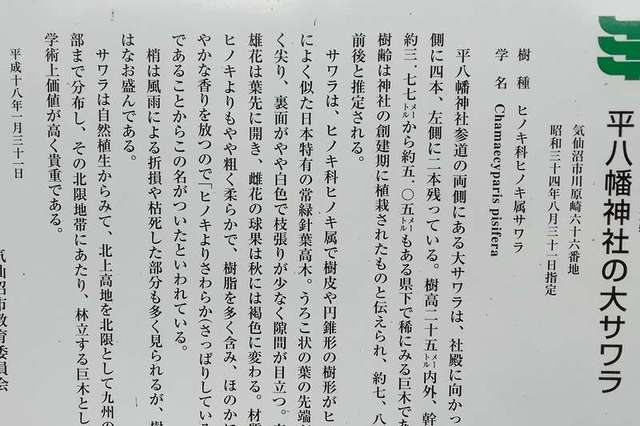 平八幡神社の大サワラ
気仙沼市川原崎六十六番地
昭和三十四年八月三十一日指定
樹 種 ヒノキ科ヒノキ属サワラ
学 名 Chamaecyparis pisifera
平八幡神社参道の両側にある大サワラは、社殿に向かっ
側に四本、左側に二本残っている。樹高二十五メートル内外、幹
約三・七七メートルから約五・〇五メートルもある県下で稀にみる巨木であ
樹齢は神社の創建期に植栽されたものと伝えられ、約七、八
前後と推定される。
サワラは、ヒノキ科ヒノキ属で樹皮や円錐形の樹形がヒ
によく似た日本特有の常緑針葉高木。うろこ状の葉の先端が
く尖り、裏面がやや白色で枝張りが少なく隙間が目立つ。
雄花は葉先に開き、雌花の球果は秋には褐色に変わる。材質
ヒノキよりもやや粗く柔らかで、樹脂を多く含み、ほのか
やかな香りを放つので「ヒノキよりさわらか(さっぱりしている
であることからこの名がついたといわれている。
梢は風雨による折損や枯死した部分も多く見られるが、樹
はなお盛んである。
サワラは自然植生からみて、北上高地を北限として九州の
部まで分布し、その北限地帯にあたり、林立する巨木とし
学術上価値が高く貴重である。
平成十八年一月三十一日
気仙沼市教育委員会